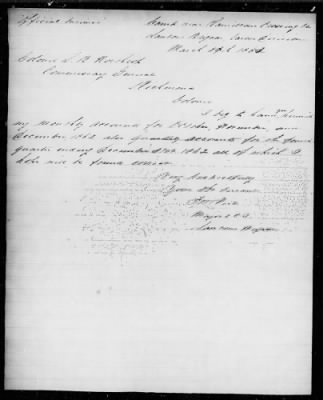 Official Business
Camp near Hamiltons Crossing Va
March 1863
Colonel L. B. Northrop
Commissary General
Richmond
Colonel
I beg to hand you herewith
my Monthly Accounts for October, November, and
December 1862 also Quarterly Accounts for the fourth
quarter ending December 31st 1862 all of which I
hope will be found correct
Very Respectfully
Your Ob Servant
Major & C.S.
Lawtons Brigade